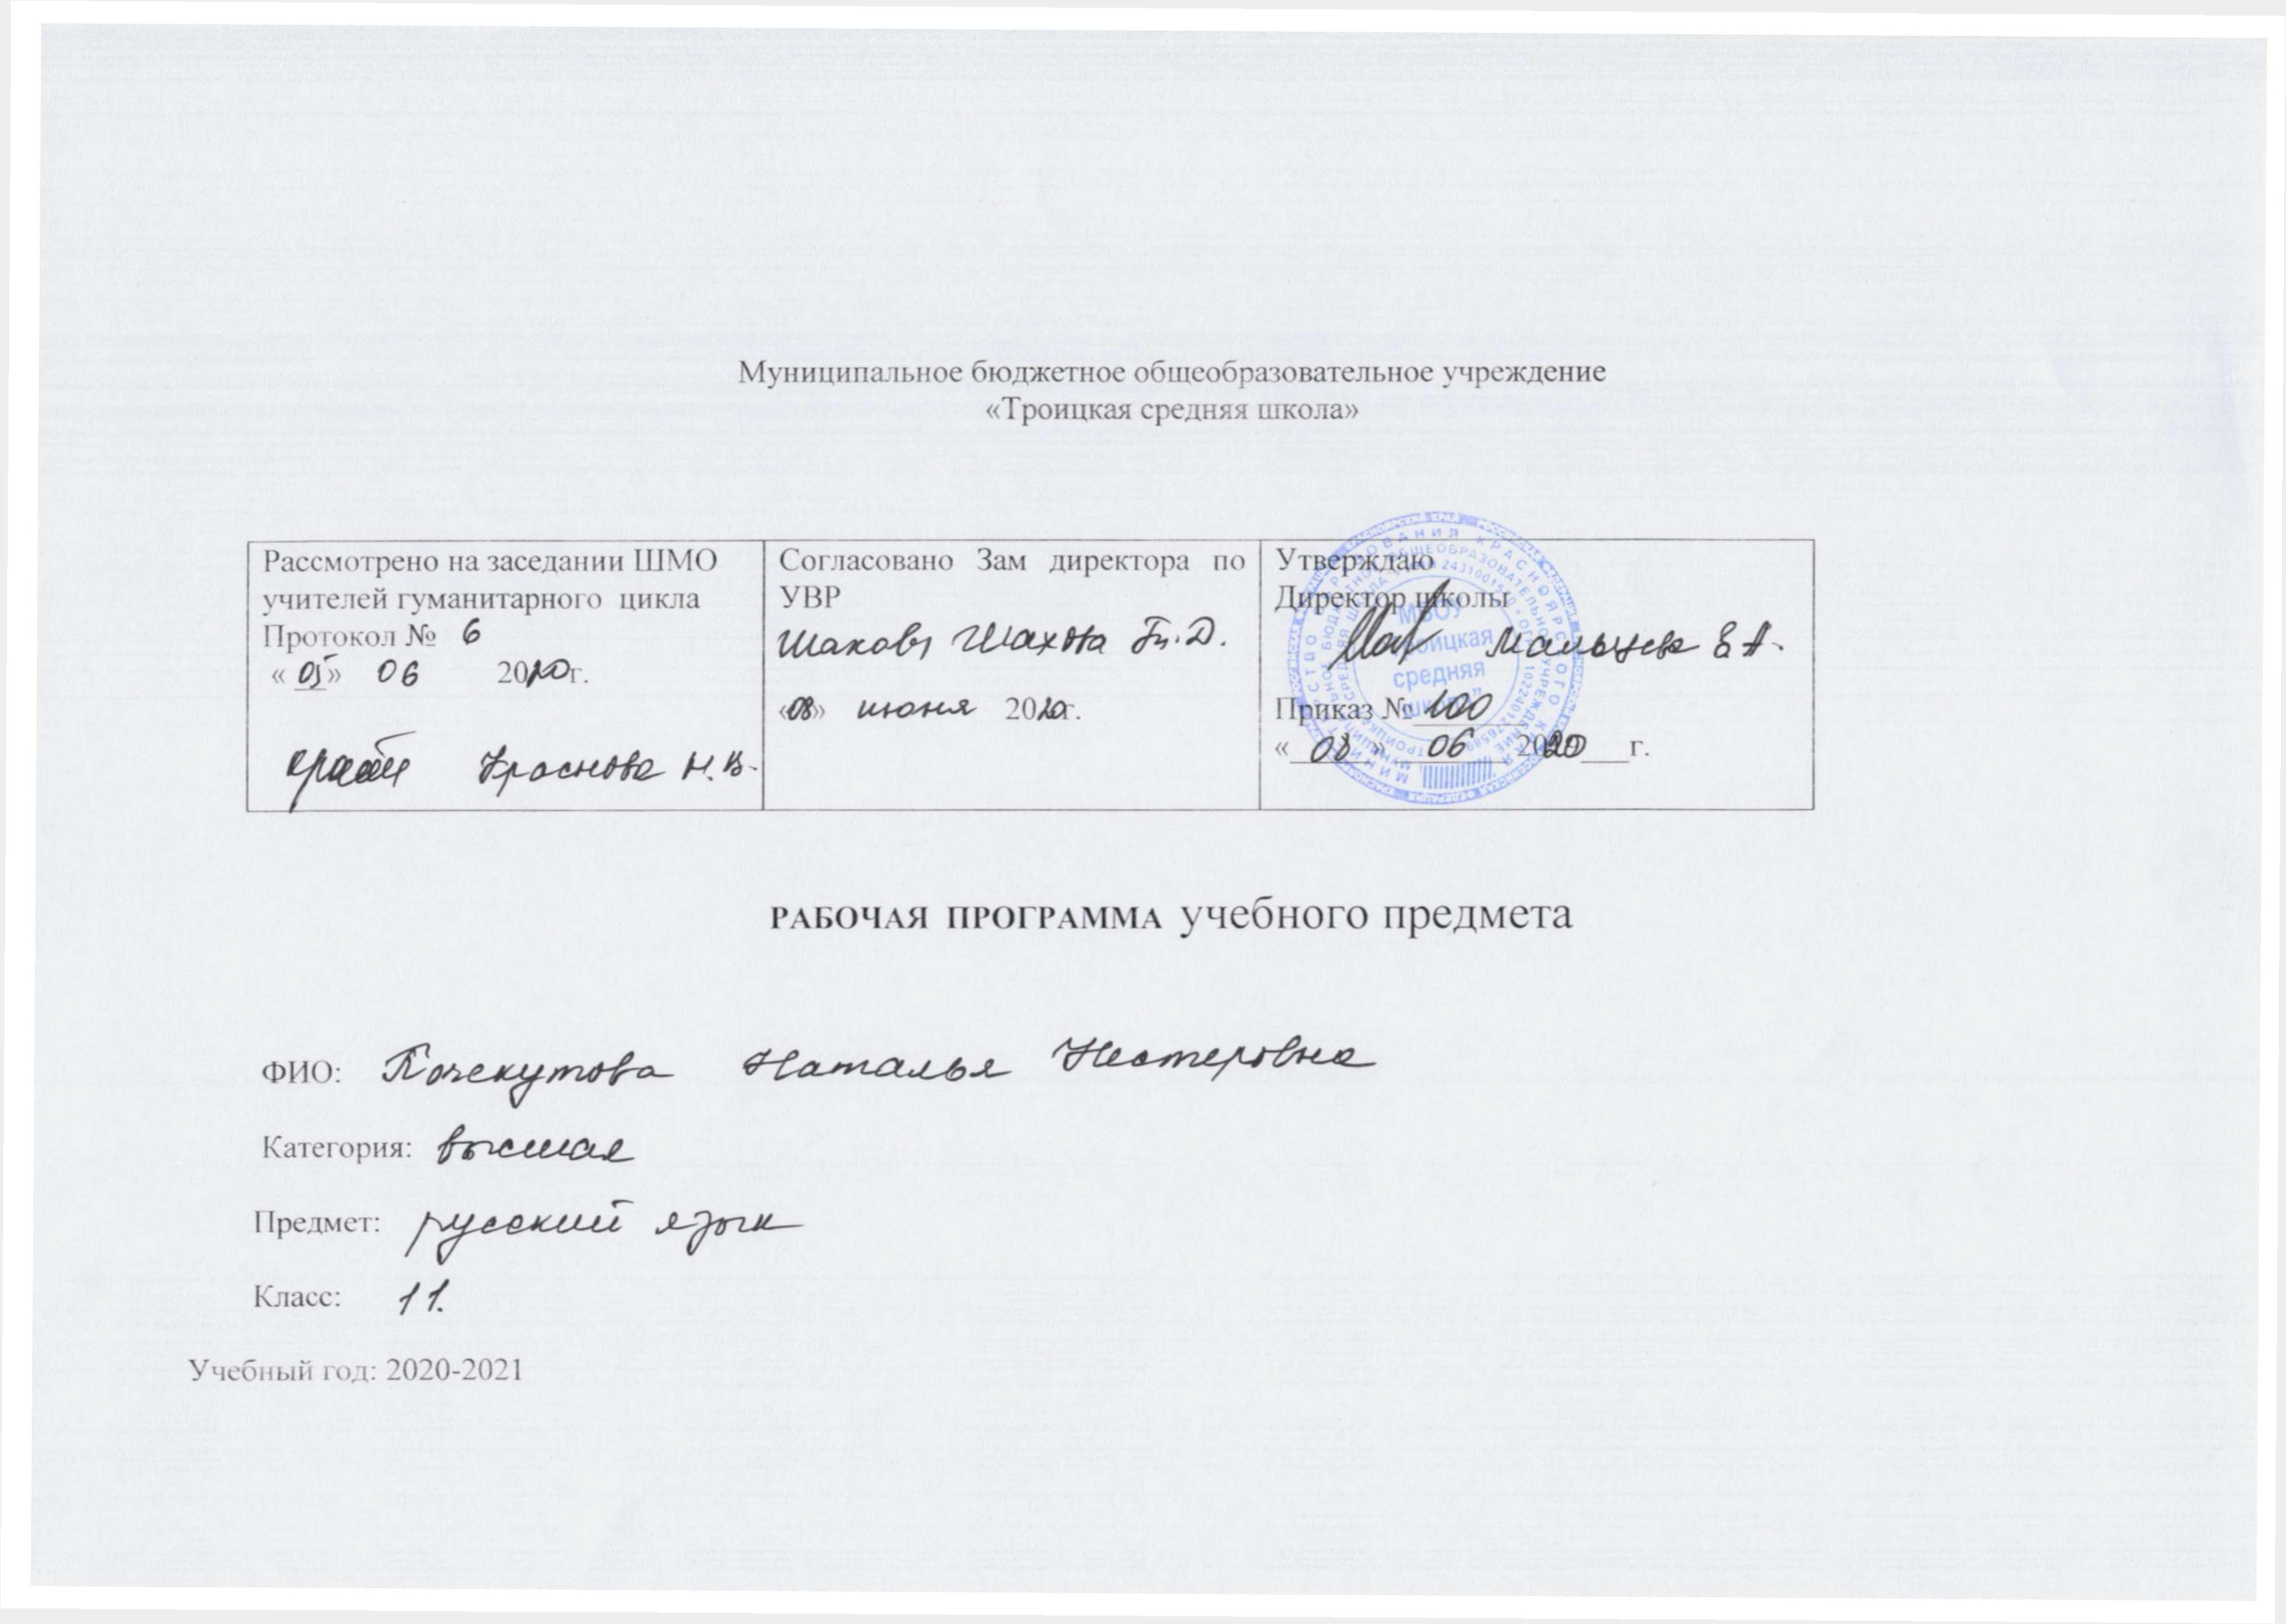 Муниципальное бюджетное общеобразовательное учреждение
«Троицкая средняя школа»
Рассмотрено на заседании ШМО
учителей гуманитарного цикла
Протокол № 6
«05» 06 2020г.
Краснова Н.В.
Согласовано Зам директора по
УВР
Шахова Т.Д.
«08» июня 2020г.
Утверждаю
Директор школы
Мальцев Е.А.
Приказ № 100
«08» 06 2020 г.
МБОУ
Троицкая
средняя
школа
РАБОЧАЯ ПРОГРАММА учебного предмета
ФИО: Почекутова Наталья Нестеровна
Категория: высшая
Предмет: русский язык
Класс: 11.
Учебный год: 2020-2021